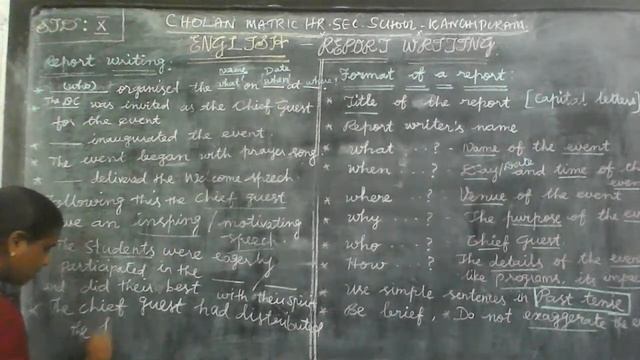 STD: X
CHOLAN MATRIC HR. SEC. SCHOOL, KANCHIPURAM.
ENGLISH - REPORT WRITING.
Report writing:
* (who) organised the name what on Date when at where?
* The DC was invited as the Chief Guest
for the event
* ___ inaugurated the event.
* The event began with prayer song.
* ___ delivered the Welcome speech.
Following this the Chief guest
an inspiring / motivating
speech.
The students were eagerly
participated in the ___ / ___
and did their best with their
* The chief guest had distributed
the
Format of a report:
* Title of the report [Capital letters]
* Report writer's name
* what ....? - Name of the event
* when ....? - Day/Date and time of the
event
* where ....? Venue of the event
* why ....? The purpose of the
* who ....? Chief Guest.
* How ....? The details of the
like programs, its
* Use simple sentences in Past tense
* Be brief, * Do not exaggerate the